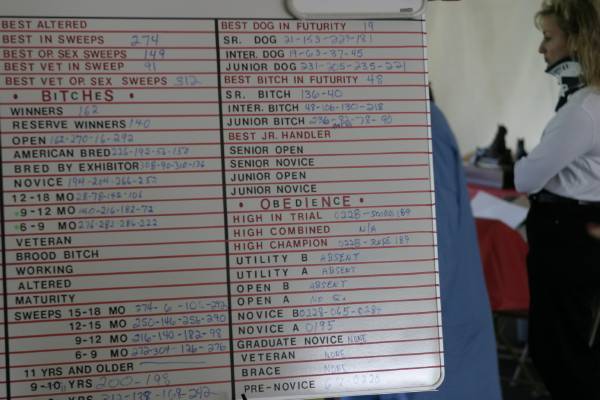 BEST ALTERED
BEST IN SWEEPS 274
BEST OP. SEX SWEEPS 149
BEST VET IN SWEEP 91
BEST VET OP. SEX SWEEPS 312
• BITCHES •
WINNERS 162
RESERVE WINNERS 140
OPEN 162-270-16-292
AMERICAN BRED
BRED BY EXHIBITOR
NOVICE 194-204-266-250
12-18 MO
9-12 MO 140-216-182-72
6-9 MO 276-282-286-222
VETERAN
BROOD BITCH
WORKING
ALTERED
MATURITY
SWEEPS 15-18 MO 274-6
12-15 MO 250-146-256-290
9-12 MO 216-140-182-98
6-9 MO 272-304-126-276
11 YRS AND OLDER
9-10 YRS 200-198
BEST DOG IN FUTURITY 19
SR. DOG
INTER. DOG 19-63-37-45
JUNIOR DOG 231-205-235-221
BEST BITCH IN FUTURITY 48
SR. BITCH 136-40
INTER. BITCH 48-106-1301-218
JUNIOR BITCH
BEST JR. HANDLER
SENIOR OPEN
SENIOR NOVICE
JUNIOR OPEN
JUNIOR NOVICE
• OBEDIENCE •
HIGH IN TRIAL 0228 189
HIGH COMBINED N/A
HIGH CHAMPION 0228 189
UTILITY B ABSENT
UTILITY A ABSENT
OPEN B ABSENT
OPEN A
NOVICE B
NOVICE A 0195
GRADUATE NOVICE NONE
VETERAN NONE
BRACE NONE
PRE-NOVICE